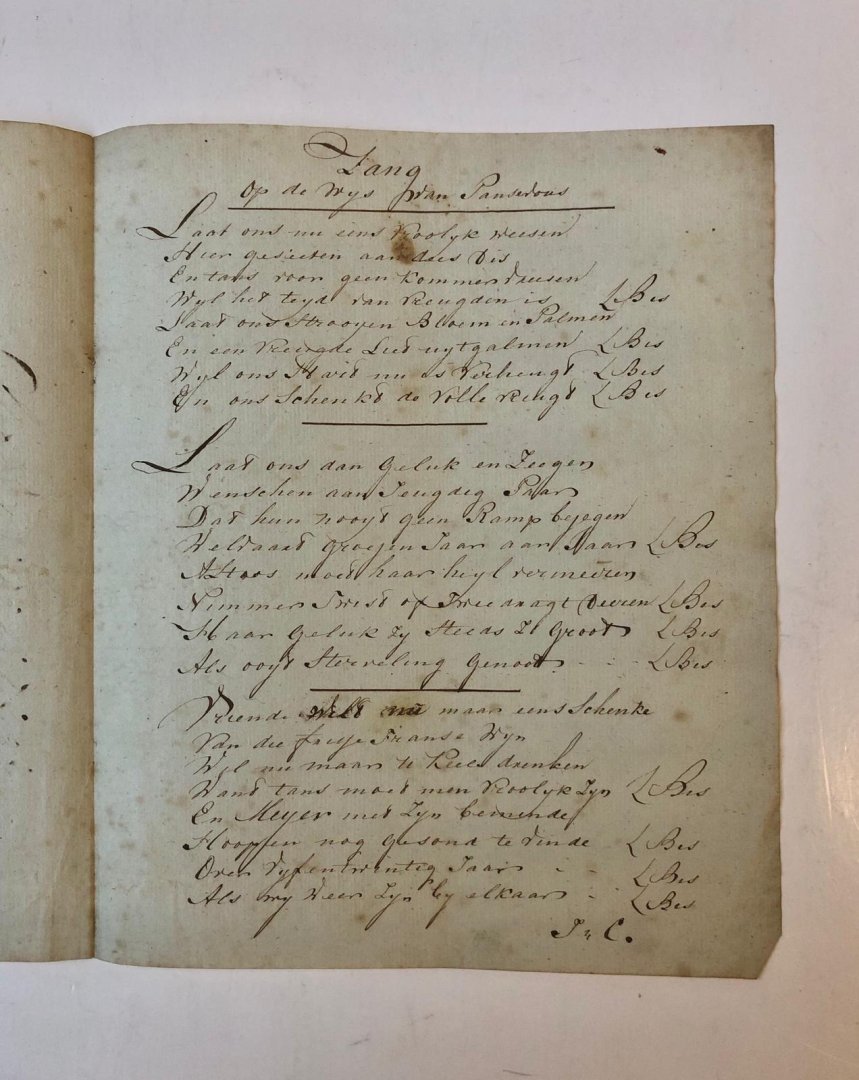 Zang
Op de Wys van Pansedous
Laat ons nu eens vroolyk weesen
Hier geseeten aan dees Dis
En tans voor geen kommer vreesen
Wyl het teyd van vreugden is Bis
Laat ons Strooyen Bloem en Palmen
En een vreugde Lied uytgalmen Bis
Wyl ons Hart nu is verheugt Bis
En ons Schenkt de volle vreugt Bis
Laat ons dan geluk en Zeegen
Wenschen aan Jeugdig Paar
Dat hun nooyt geen Ramp bejegen
Welvaart groeyen Jaar aan Jaar Bis
Altoos moet haar heyl vermeeren
Nimmer Twist of Tweedragt Deeren Bis
Haar geluk zy Steeds Zo groot Bis
Als ooyt Sterveling genoot Bis
Vriende Wilt nu maar eens Schenke
Van die Franse Wyn
Wyl nu maar te drenken
Want tans moet men vroolyk Zyn Bis
En Meyer met Zyn beminde
Hoopen nog gesond te vinde Bis
Over vyfentwintig Jaar Bis
Als wy Weer Zyn by elkaar Bis
J: C.